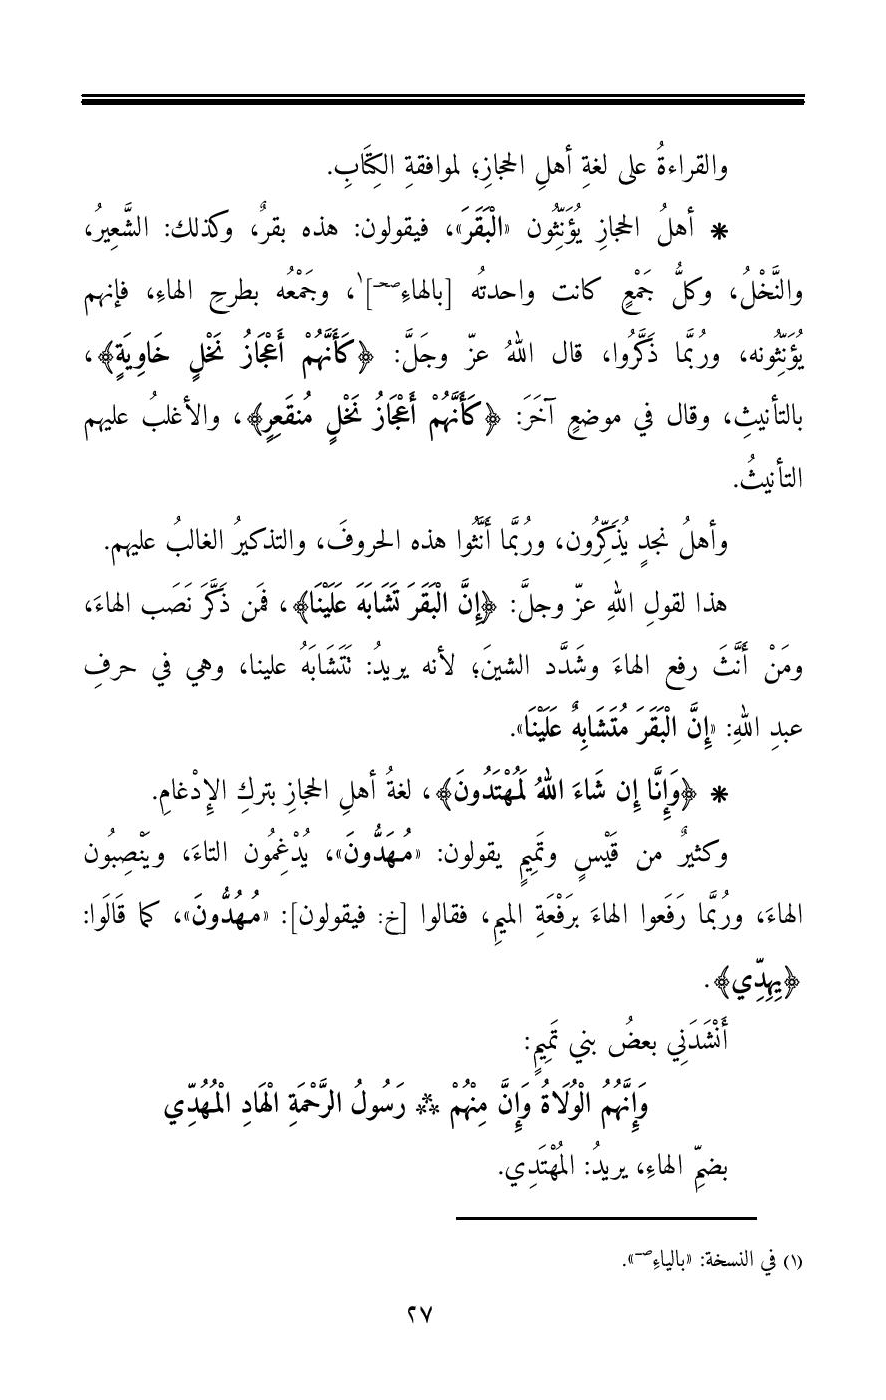 والقراءةُ على لغةِ أهلِ الحجازِ؛ لموافقةِ الكِتَابِ.
* أهلُ الحجازِ يُؤَنِّثُون «الْبَقَرَ»، فيقولون: هذه بقرٌ، وكذلك: الشَّعِيرُ،
والنَّخْلُ، وكلُّ جَمْعٍ كانت واحدتُه [بالهاءِصحـ]١، وجَمْعُه بطرحِ الهاءِ، فإنهم
يُؤَنِّثُونه، ورُبَّما ذَكَّرُوا، قال اللهُ عزّ وجَلَّ: ﴿كَأَنَّهُمْ أَعْجَازُ نَخْلٍ خَاوِيَةٍ﴾،
بالتأنيثِ، وقال في موضعٍ آخَرَ: ﴿كَأَنَّهُمْ أَعْجَازُ نَخْلٍ مُنقَعِرٍ﴾، والأغلبُ عليهم
التأنيثُ.
وأهلُ نجدٍ يُذَكِّرُون، ورُبَّما أَنَّثُوا هذه الحروفَ، والتذكيرُ الغالبُ عليهم.
هذا لقولِ اللهِ عزّ وجلَّ: ﴿إِنَّ الْبَقَرَ تَشَابَهَ عَلَيْنَا﴾، فمَن ذَكَّرَ نَصَب الهاءَ،
ومَنْ أَنَّثَ رفع الهاءَ وشَدَّد الشينَ؛ لأنه يريدُ: تَتَشَابَهُ علينا، وهي في حرفِ
عبدِ اللهِ: «إِنَّ الْبَقَرَ مُتَشَابِهٌ عَلَيْنَا».
* ﴿وَإِنَّا إِن شَاءَ اللهُ لَمُهْتَدُونَ﴾، لغةُ أهلِ الحجازِ بتركِ الإِدْغامِ.
وكثيرٌ من قَيْسٍ وتَمِيمٍ يقولون: «مُهَدُّونَ»، يُدْغِمُون التاءَ، ويَنْصِبُون
الهاءَ، ورُبَّما رَفَعوا الهاءَ برَفْعَةِ الميمِ، فقالوا [خ: فيقولون]: «مُهُدُّونَ»، كما قَالَوا:
﴿يِهِدِّي﴾.
أَنْشَدَنِي بعضُ بني تَمِيمٍ:
وَإِنَّهُمُ الْوُلَاةُ وَإِنَّ مِنْهُمْ ** رَسُولُ الرَّحْمَةِ الْهَادِ الْمُهُدِّي
بضمِّ الهاءِ، يريدُ: المُهْتَدِي.
(١) في النسخة: «بالياءِصـ».
٢٧